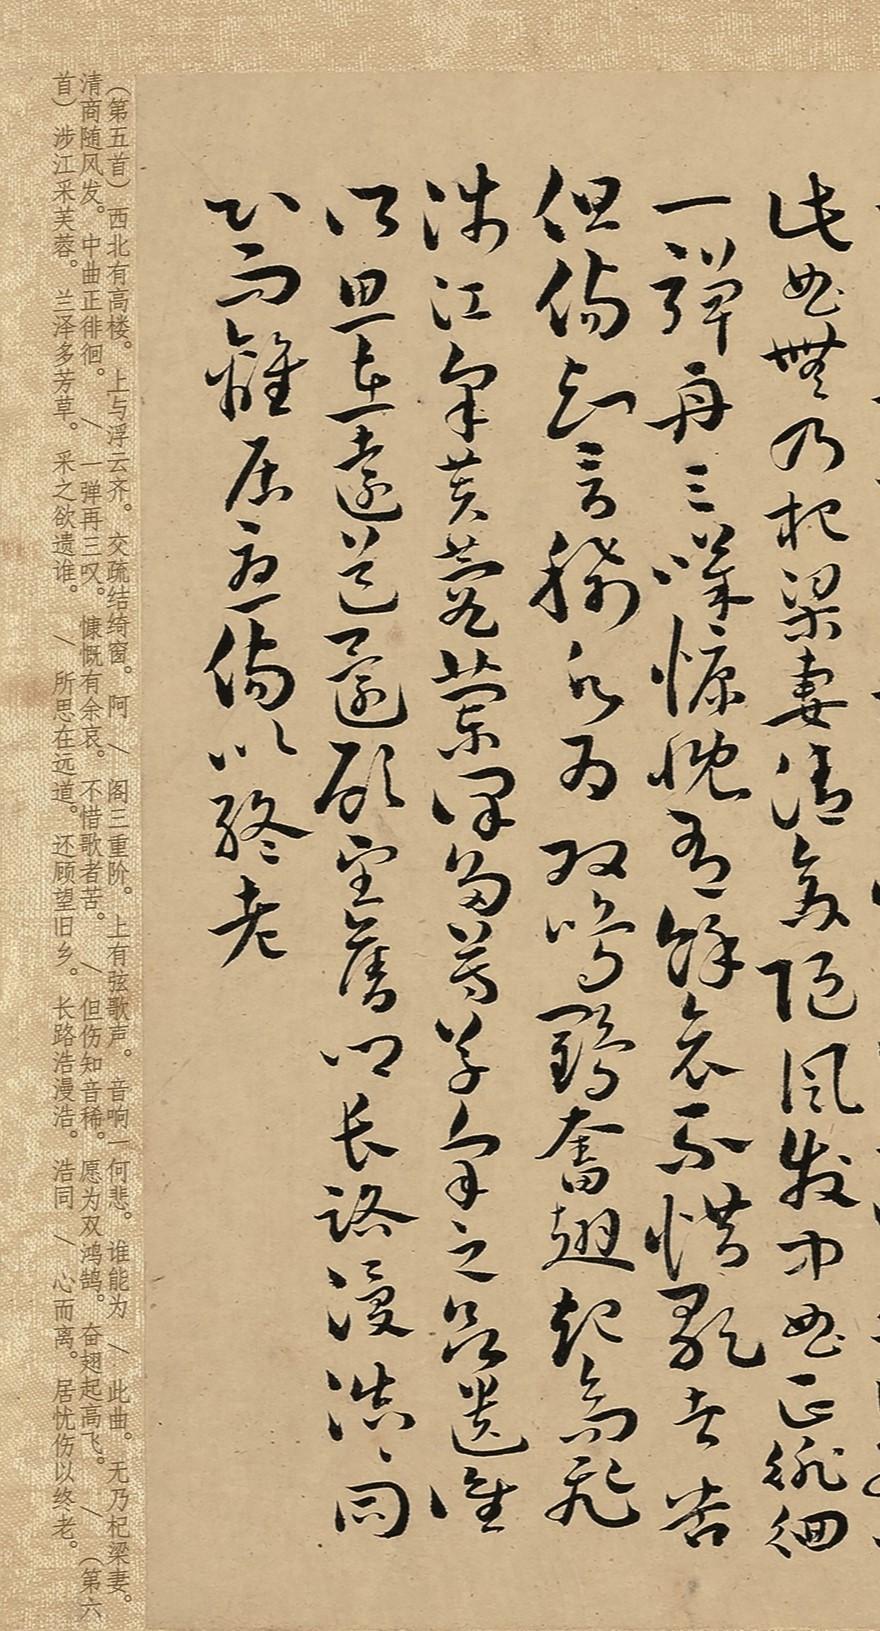 此曲無乃杞梁妻清商随風發中曲正徘徊
一彈再三嘆慷慨有餘哀不惜歌者苦
但傷知音稀願為雙鳴鶴奮翅起高飛
涉江采芙蓉蘭澤多芳草采之欲遺誰
所思在遠道還顧望舊鄉長路漫浩浩同
心而離居憂傷以終老
（第五首）西北有高楼。上与浮云齐。交疏结绮窗。阿╱阁三重阶。上有弦歌声。音响一何悲。谁能为╱此曲。无乃杞梁妻。
清商随风发。中曲正徘徊。╱一弹再三叹。慷慨有余哀。不惜歌者苦。╱但伤知音稀。愿为双鸿鹄。奋翅起高飞。╱（第六
首）涉江采芙蓉。兰泽多芳草。采之欲遗谁。╱所思在远道。还顾望旧乡。长路浩漫浩。浩同╱心而离。居忧伤以终老。